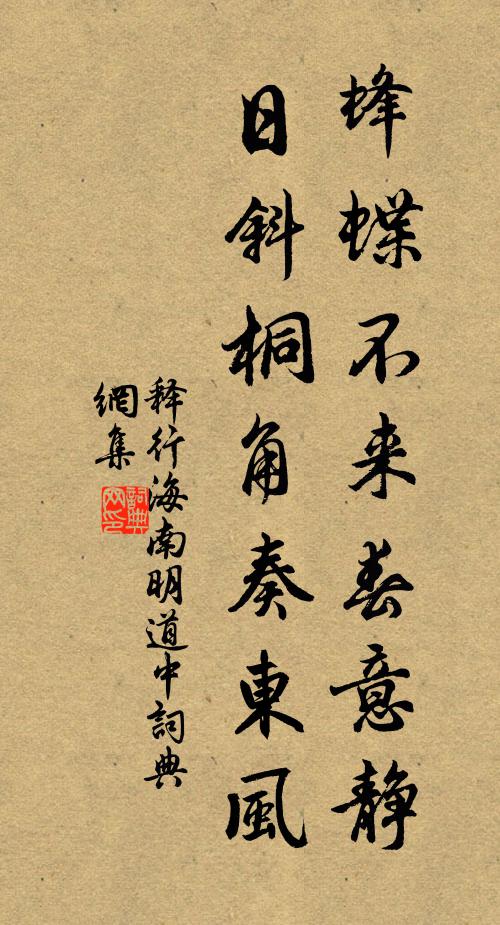 蜂蝶不来春意静
日斜桐角奏東風
释行海南明道中詞典
網集
詞典
网印